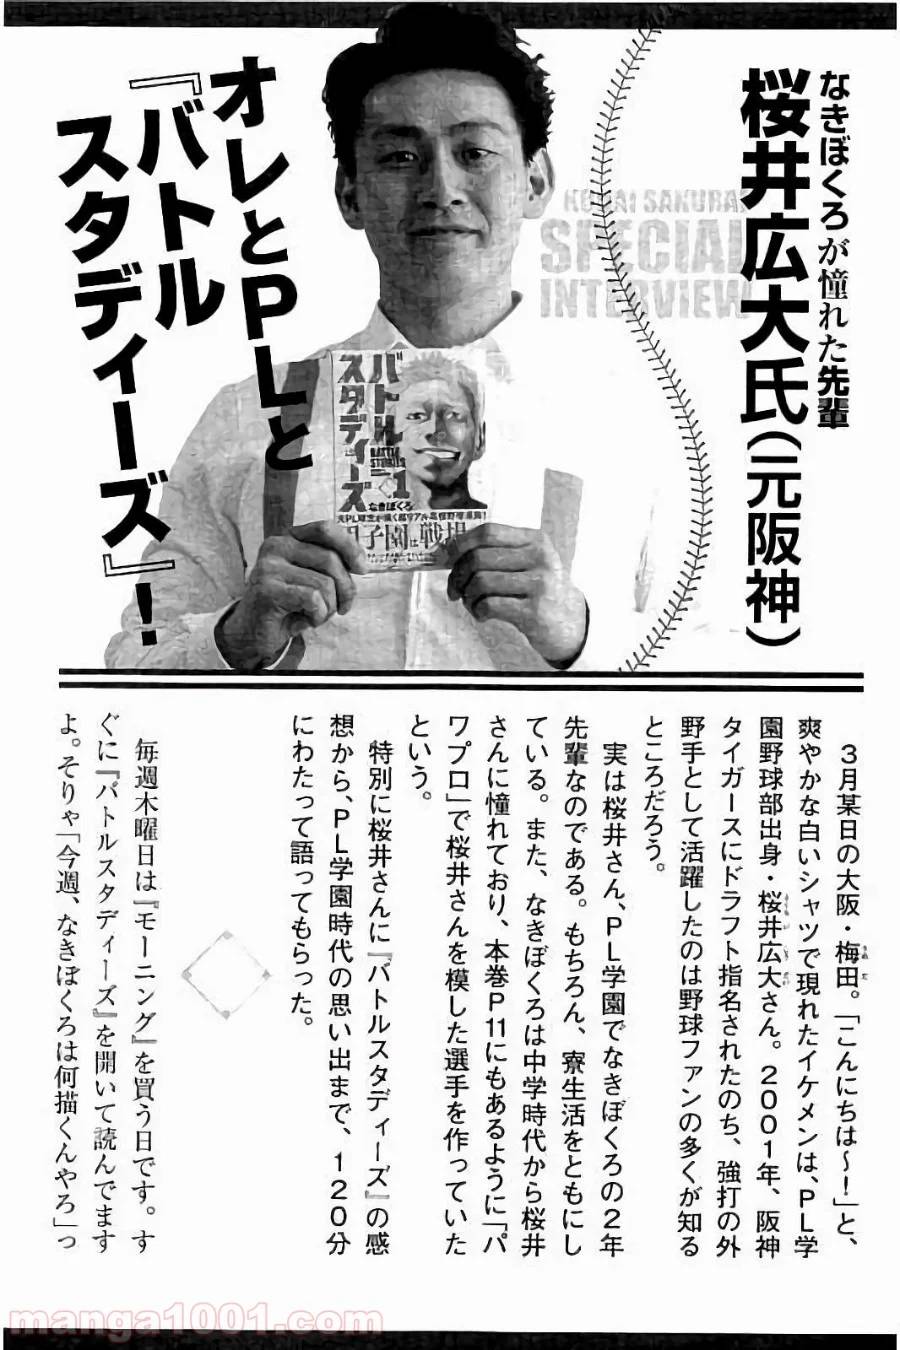 なきぼくろが憧れた先輩
桜井広大氏(元阪神)
KODAI SAKURAI
SPECIAL
INTERVIEW
オレとPLと
『バトル
スタディーズ』!
バトル
スタディーズ
BATTLE
STUDIES
1
なきぼくろ
甲子園は戦場
3月某日の大阪・梅田。「こんにちは〜!」と、
爽やかな白いシャツで現れたイケメンは、PL学
園野球部出身・桜井広大さん。2001年、阪神
タイガースにドラフト指名されたのち、強打の外
野手として活躍したのは野球ファンの多くが知る
ところだろう。
実は桜井さん、PL学園でなきぼくろの2年
先輩なのである。もちろん、寮生活をともにし
ている。また、なきぼくろは中学時代から桜井
さんに憧れており、本巻P11にもあるように「パ
ワプロ」で桜井さんを模した選手を作っていた
という。
特別に桜井さんに『バトルスタディーズ』の感
想から、PL学園時代の思い出まで、120分
にわたって語ってもらった。
毎週木曜日は『モーニング』を買う日です。す
ぐに『バトルスタディーズ』を開いて読んでます
よ。そりゃ「今週、なきぼくろは何描くんやろ」っ
manga1001.com